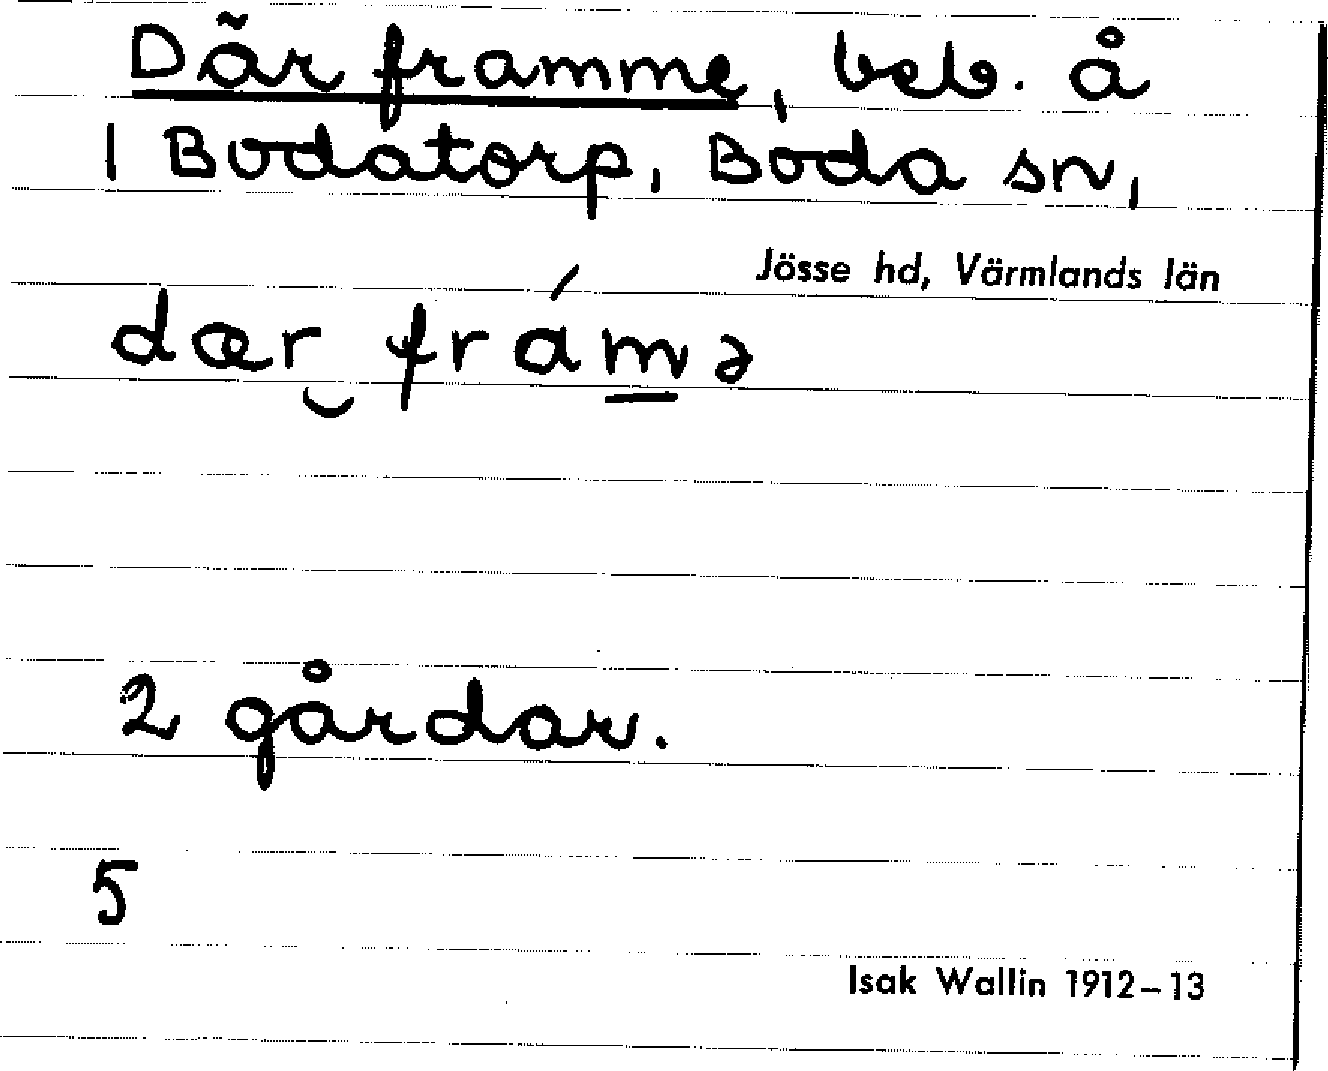 Där framme, beb. å
1 Bodatorp, Boda sn,
Jösse hd, Värmlands län
dær frámə
2 gårdar.
5
Isak Wallin 1912–13